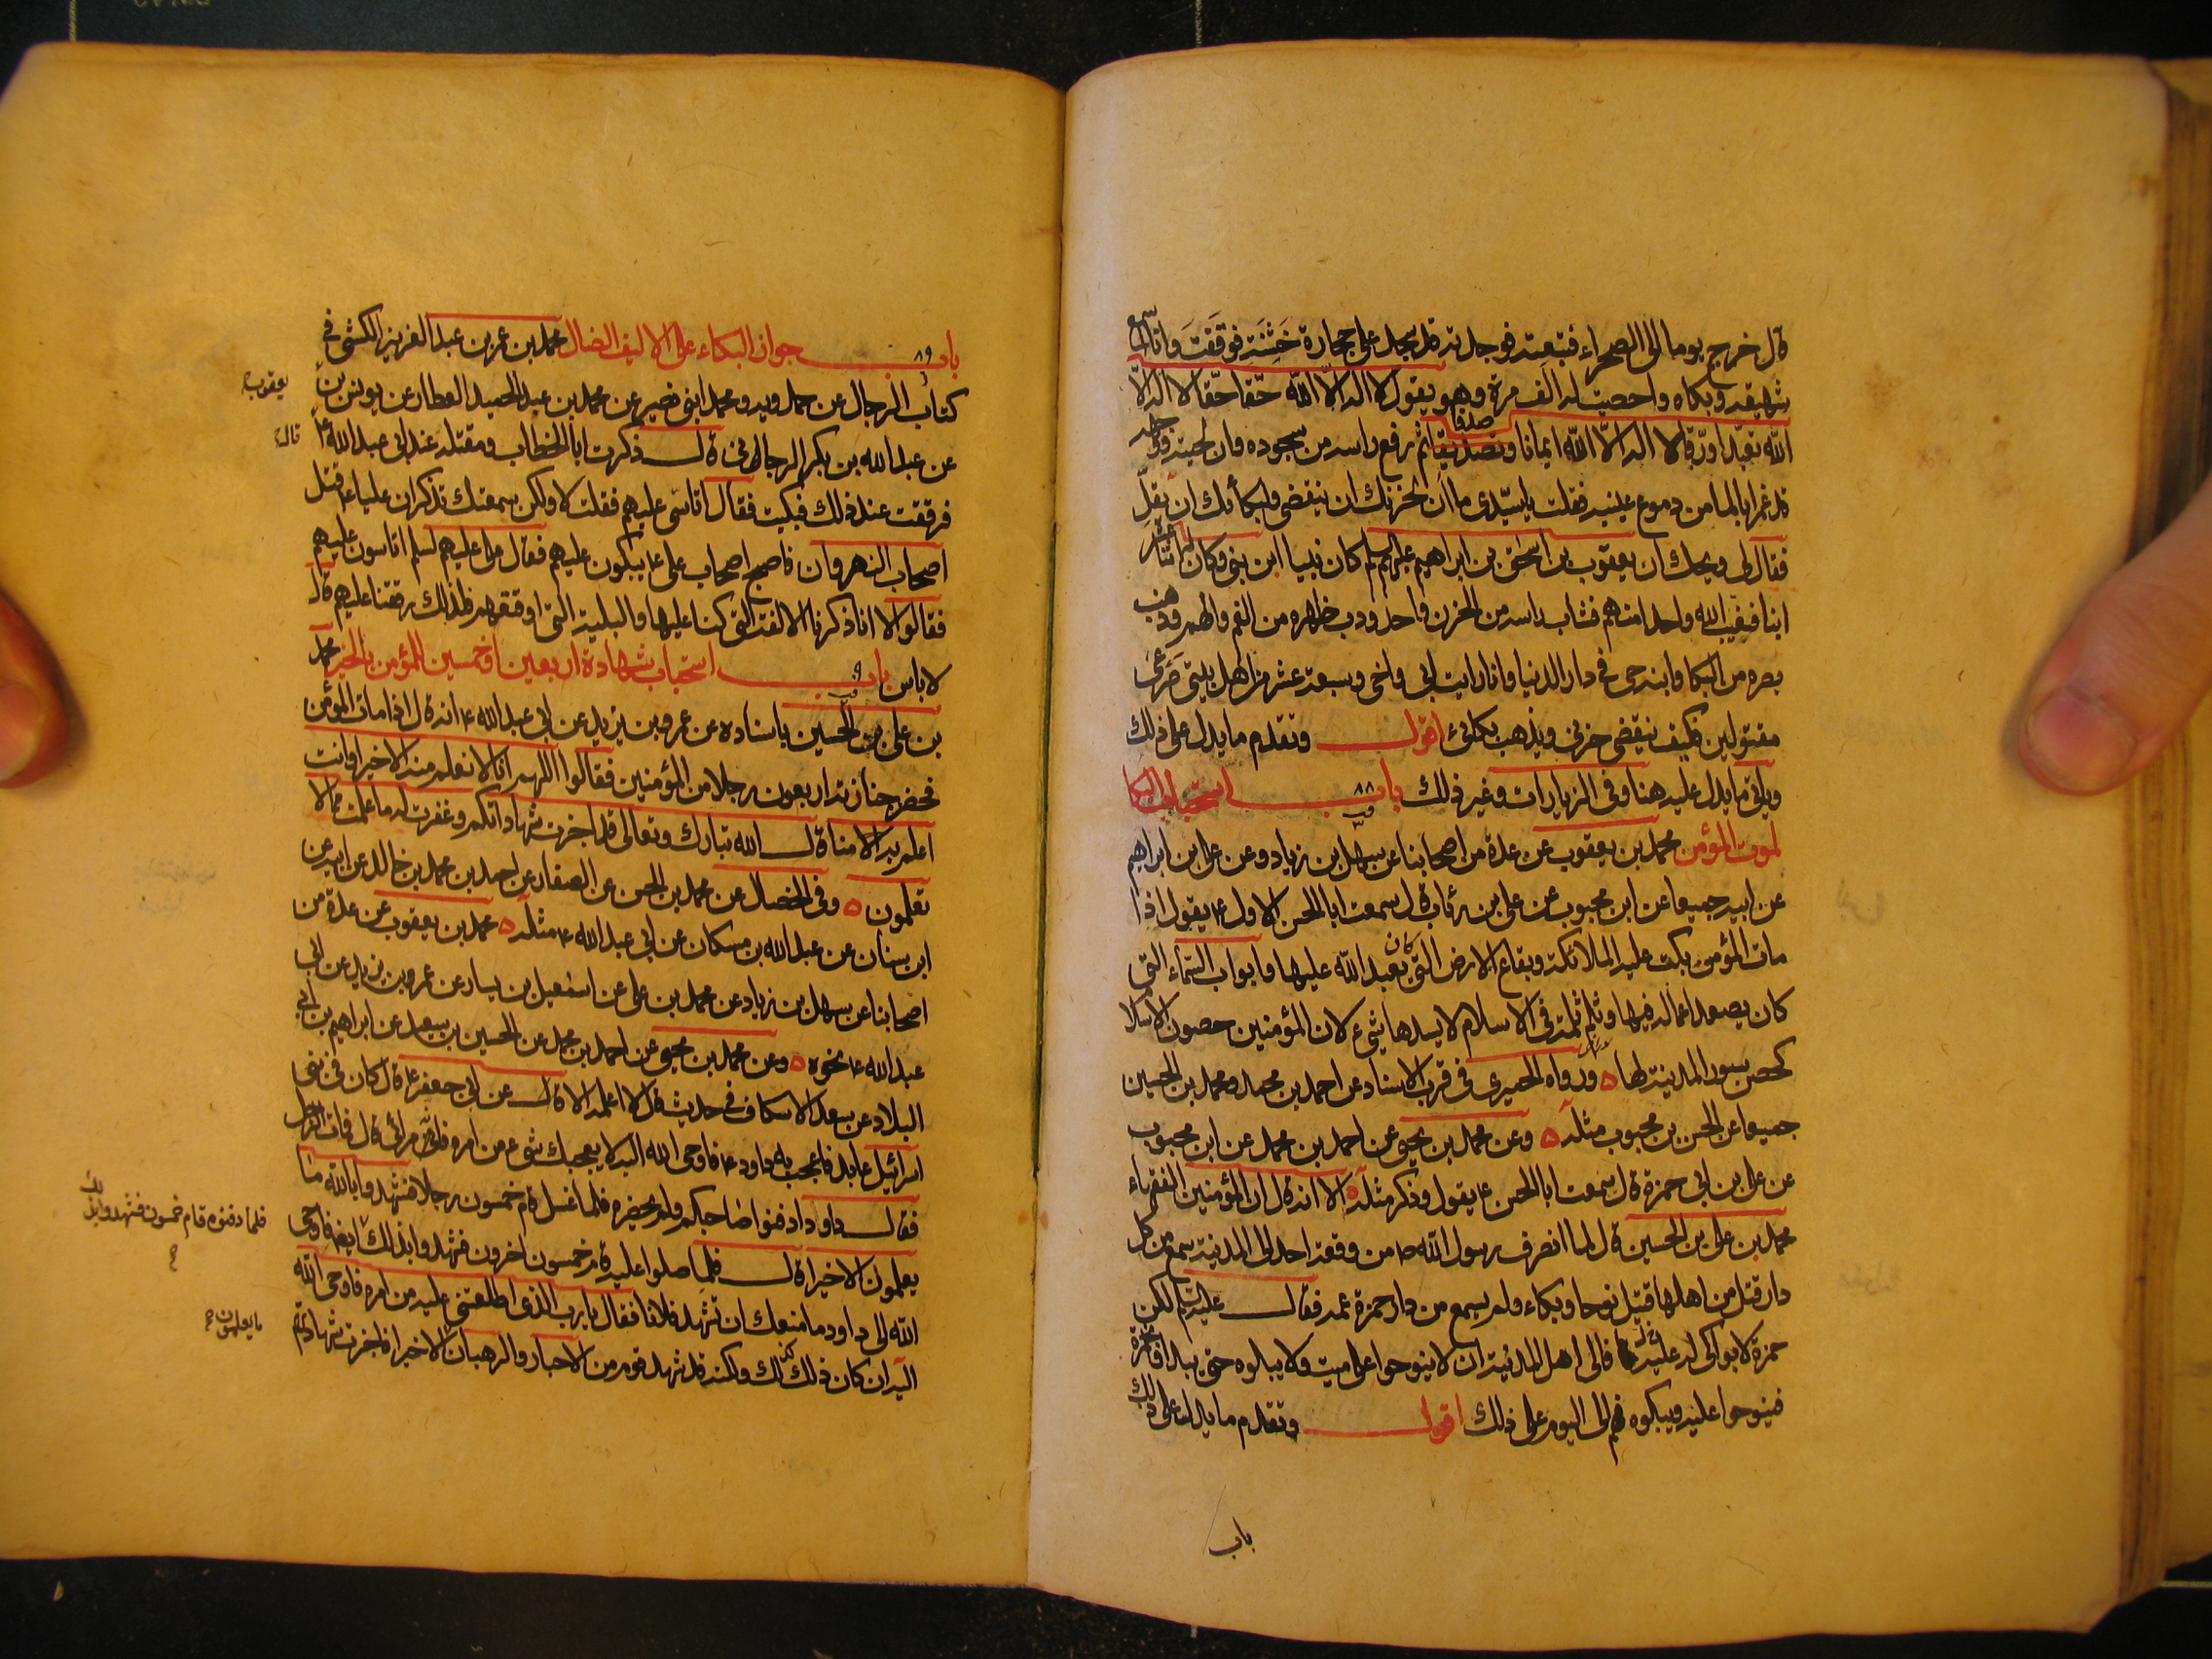 قال خرج يوما الى الصحراء فتبعته فوجدته قد سجد على حجارة خشنة فوقفت وانا اسمع
شهيقه وبكاه واحصيت له الف مرة وهو يقول لا اله الا الله حقا حقا لا اله الا
الله تعبدا ورقا لا اله الا الله ايمانا وتصديقا صدقا ثم رفع راسه من سجوده وان لحيته ووجهه
قد غمرا بالما من دموع عينيه فقلت يا سيدى ما ان لحزنك ان ينقضى ولبكائك ان يقل
فقال لى ويحك ان يعقوب بن اسحق بن ابراهيم كان نبيا ابن نبى وكان له اثنا عشر
ابنا فغيب الله واحدا منهم فشاب راسه من الحزن واحدودب ظهره من الغم والهم وذهب
بصره من البكا وابنه حى فى دار الدنيا وانا رايت ابى واخى وسبعة عشر من اهل بيتى صرعى
مقتولين فكيف ينقضى حزنى ويذهب بكائى اقول وتقدم ما يدل على ذلك
وياتى ما يدل عليه هنا وفى الزيارات وغير ذلك باب ٨٨ استحباب البكا
لموت المؤمن محمد بن يعقوب عن عدة من اصحابنا عن سهل بن زياد وعن على بن ابراهيم
عن ابيه جميعا عن ابن محبوب عن على بن رئاب قال سمعت ابا الحسن الاول ع يقول اذا
مات المؤمن بكت عليه الملائكة وبقاع الارض التى كان يعبد الله عليها وابواب السماء التى
كان يصعد اعماله فيها وثلم ثلمة فى الاسلام لا يسدها شىء لان المؤمنين حصون الاسلام
كحصن سور المدينة لها ه ورواه الحميرى فى قرب الاسناد عن احمد بن محمد ومحمد بن الحسين
جميعا عن الحسن بن محبوب مثله ه وعن محمد بن يحيى عن احمد بن محمد عن ابن محبوب
عن على بن ابى حمزة قال سمعت ابا الحسن ع يقول وذكر مثله ه الا انه قال ان المؤمنين الفقهاء
محمد بن على بن الحسين قال لما انصرف رسول الله ص من وقعة احد الى المدينة سمع من كل
دار قتل من اهلها قتيل نوحا وبكاء ولم يسمع من دار حمزة عمه فقال لكن
حمزة لا بواكى له فالى اهل المدينة ان لا ينوحوا على ميت ولا يبكوه حتى يبداوا بحمزة
فينوحوا عليه ويبكوه فهم الى اليوم على ذلك اقول وتقدم ما يدل على ذلك
باب
باب ٨٩ جواز البكاء على الاليف الضال محمد بن عمر بن عبد العزيز الكشى فى
كتاب الرجال عن حمدويه ومحمد ابنى نصير عن محمد بن عبد الحميد العطار عن يونس بن
يعقوب
عن عبد الله بن بكير الرجانى قال ذكرت ابا الخطاب ومقتله عند ابى عبد الله ع
قال
فرققت عند ذلك فبكيت فقال اتاسى عليهم فقلت لا ولكن سمعتك تذكر ان عليا ع قتل
اصحاب النهروان فاصبح اصحاب على ع يبكون عليهم فقال على عليه السلم اتاسون عليهم
فقالوا لا انا ذكرنا الالفة التى كنا عليها والبلية التى اوقعتهم فلذلك رققنا عليهم قال
لا باس باب ٩٠ استحباب شهادة اربعين او خمسين للمؤمن بالخير محمد
بن على بن الحسين باسناده عن عمرو بن يزيد عن ابى عبد الله ع انه قال اذا مات المؤمن
فحضر جنازته اربعون رجلا من المؤمنين فقالوا اللهم انا لا نعلم منه الا خيرا وانت
اعلم به منا قال الله تبارك وتعالى قد اجزت شهاداتكم وغفرت له ما علمت مما لا
تعلمون ه وفى الخصال عن محمد بن الحسن عن الصفار عن احمد بن محمد بن خالد عن ابيه عن
ابن سنان عن عبد الله بن مسكان عن ابى عبد الله ع مثله ه محمد بن يعقوب عن عدة من
اصحابنا عن سهل بن زياد عن محمد بن على عن اسمعيل بن يسار عن عمرو بن يزيد عن ابى
عبد الله ع نحوه ه وعن محمد بن يحيى عن احمد بن محمد عن الحسين بن سعيد عن ابراهيم بن ابى
البلاد عن سعد الاسكاف فى حديث قال لا اعلمه الا قال عن ابى جعفر ع قال كان فى بنى
اسرائيل عابد فاعجب به داود ع فاوحى الله اليه لا يعجبك شىء من امره فانه مرائى قال فمات الرجل
فقال داود ادفنوا صاحبكم ولم يحضره فلما غسل قام خمسون رجلا فشهدوا بالله ما
يعلمون الا خيرا قال فلما صلوا عليه قام خمسون اخرون فشهدوا بذلك ايضا فاوحى
فلما دفنوه قام خمسون فشهدوا بذلك
الله الى داود ما منعك ان تشهد فلانا فقال يا رب الذى اطلعتنى عليه من امره فاوحى الله
اليه ان كان ذلك كذلك ولكنه قد شهد قوم من الاحبار والرهبان الا خيرا فاجزت شهادتهم
ما يعلمون